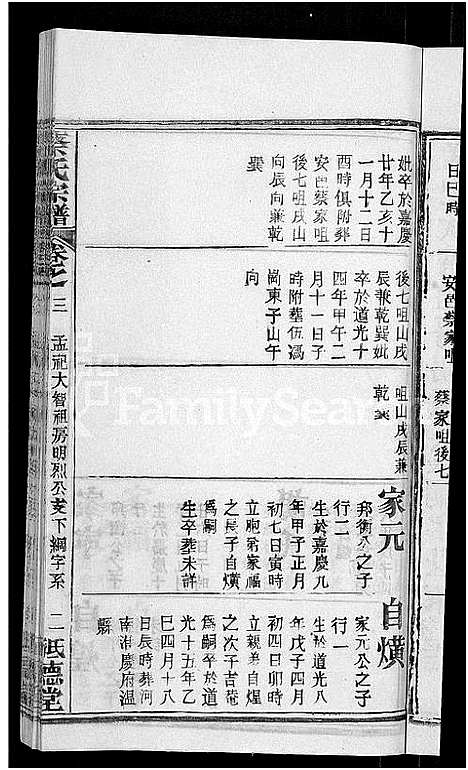 日巳時
安邑蔡家咀
蔡家咀後七
妣卒於嘉慶
廿年乙亥十
一月十二日
酉時俱附葬
安邑蔡家咀
後七咀戌山
向辰向兼乾
巽
後七咀山戌
辰兼乾巽妣
卒於道光十
四年甲午二
月十一日子
時附塟伍馮
崗東子山午
向
咀山戌辰兼
乾巽
家元
邦衡公之子
行二
生於嘉慶九
年甲子正月
初七日寅時
立胞弟家福
之長子自熿
為嗣
生卒塟未詳
自熿
家元公之子
行一
生於道光八
年戊子四月
初四日卯時
立親弟自煋
之次子吉菴
為嗣卒於道
光十五年乙
巳四月十八
日辰時葬河
南淮慶府温
縣
蔡氏宗譜
卷之三
孟祀大智祖房明烈公支下綱字系
二
祇德堂
FamilySearch